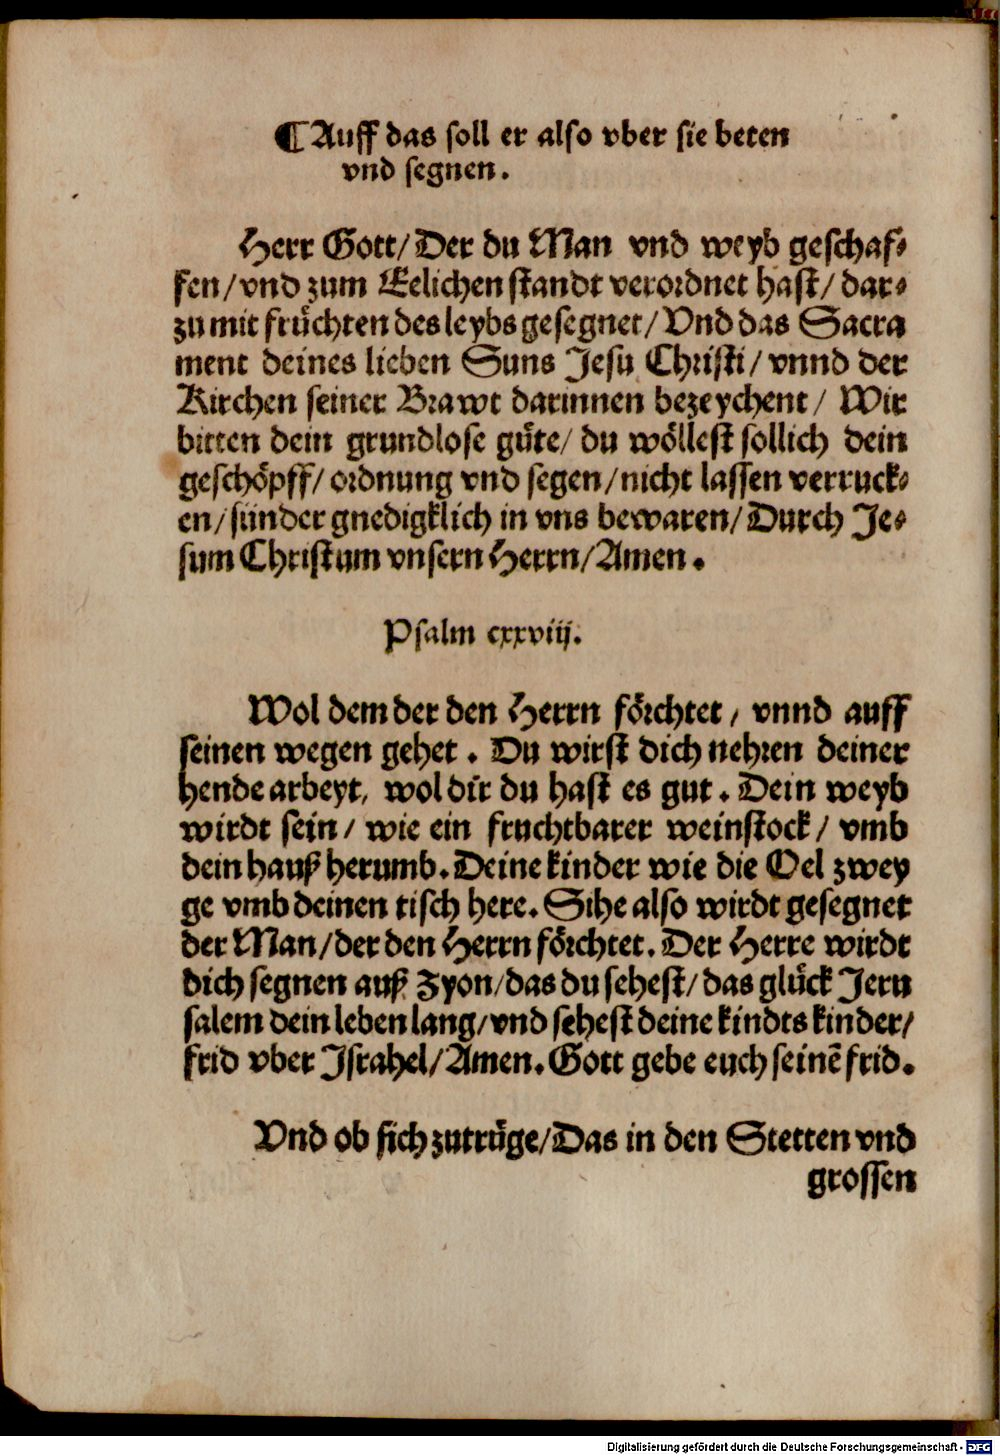 ¶ Auff das soll er also vber sie beten
vnd segnen.
Herr Gott/ Der du Man vnd weyb geschaf-
fen/ vnd zum Eelichen standt verordnet hast/ dar-
zu mit früchten des leybs gesegnet/ Vnd das Sacra
ment deines lieben Suns Jesu Christi/ vnnd der
Kirchen seiner Brawt darinnen bezeychent/ Wir
bitten dein grundlose güte/ du wöllest sollich dein
geschöpff/ ordnung vnd segen/ nicht lassen verruck-
en/ sunder gnedigklich in vns bewaren/ Durch Je-
sum Christum vnsern Herrn/ Amen.
Psalm cxxviij.
Wol dem der den Herrn förchtet/ vnnd auff
seinen wegen gehet. Du wirst dich nehren deiner
hende arbeyt, wol dir du hast es gut. Dein weyb
wirdt sein/ wie ein fruchtbarer weinstock/ vmb
dein hauß herumb. Deine kinder wie die Oel zwey
ge vmb deinen tisch here. Sihe also wirdt gesegnet
der Man/ der den Herrn förchtet. Der Herre wirdt
dich segnen auß Zyon/ das du sehest/ das glück Jeru
salem dein leben lang/ vnd sehest deine kindts kinder/
frid vber Israhel/ Amen. Gott gebe euch seinẽ frid.
Vnd ob sich zutrüge/ Das in den Stetten vnd
grossen
Digitalisierung gefördert durch die Deutsche Forschungsgemeinschaft - DFG